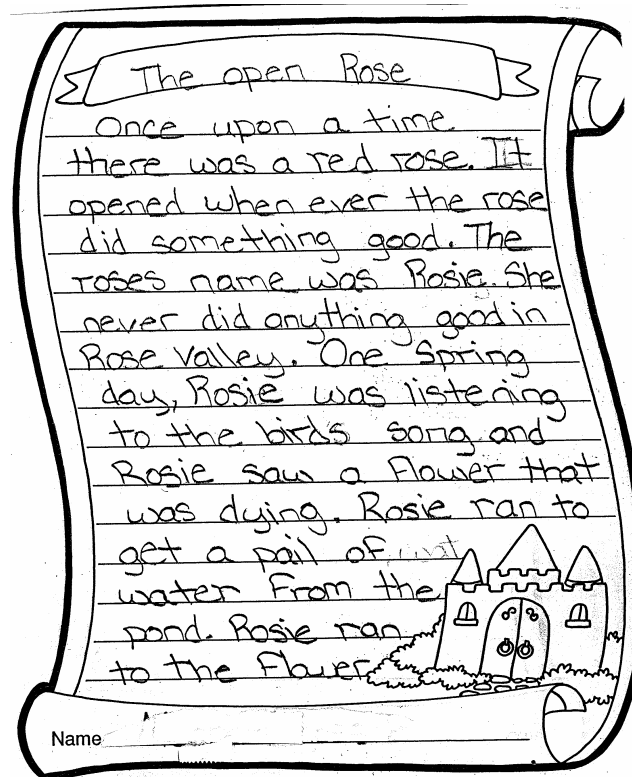 The open Rose
Once upon a time
there was a red rose. It
opened when ever the rose
did something good. The
roses name was Rosie. She
never did anything good in
Rose Valley. One Spring
day, Rosie was listening
to the birds song and
Rosie saw a Flower that
was dying. Rosie ran to
get a pail of
water From the
pond. Rosie ran
to the Flower
Name